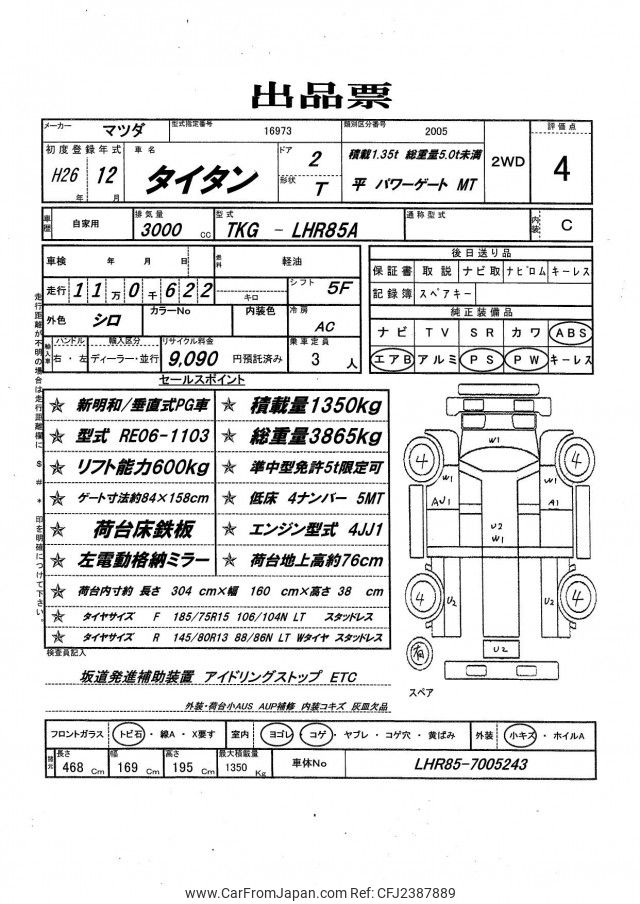 出品票
メーカー マツダ 型式指定番号 16973 類別区分番号 2005 評価点
初度登録年式 車名 ドア 2 積載1.35t 総重量5.0t未満 2WD 4
H26 年 12 月 タイタン 形状 T 平 パワーゲート MT
車歴 自家用 排気量 3000 CC 型式 TKG － LHR85A 通称型式 内装 C
車検 年 月 日 燃料 軽油 後日送り品
走行 11万0千622 キロ シフト 5F 保証書 取説 ナビ取 ナビロム キーレス
記録簿 スペアキー
外色 シロ カラーNo 内装色 冷房 AC 純正装備品
ナビ TV SR カワ ABS
輸入車 ハンドル 右・左 輸入区分 ディーラー・並行 リサイクル料金 9,090 円預託済み 乗車定員 3 人
エアB アルミ PS PW キーレス
走行距離が不明の場合は走行距離欄に $ # * 印を明確につけて下さい。
セールスポイント
☆ 新明和/垂直式PG車 ☆ 積載量1350kg
☆ 型式 RE06-1103 ☆ 総重量3865kg
☆ リフト能力600kg ☆ 準中型免許5t限定可
☆ ゲート寸法約84×158cm ☆ 低床 4ナンバー 5MT
☆ 荷台床鉄板 ☆ エンジン型式 4JJ1
☆ 左電動格納ミラー ☆ 荷台地上高約76cm
☆ 荷台内寸約 長さ 304 cm×幅 160 cm×高さ 38 cm
☆ タイヤサイズ F 185/75R15 106/104N LT スタッドレス
☆ タイヤサイズ R 145/80R13 88/86N LT Wタイヤ スタッドレス
W1
4 4
W1 W1
AU1 A1
U2
W1
4 4
U2 U2
有 U2
スペア
検査員記入
坂道発進補助装置 アイドリングストップ ETC
外装・荷台小AUS AUP補修 内装コキズ 灰皿欠品
フロントガラス トビ石・線A・X要す 室内 ヨゴレ・コゲ・ヤブレ・コゲ穴・黄ばみ 外装 小キズ・ホイルA
諸元 長さ 468 Cm 幅 169 Cm 高さ 195 Cm 最大積載量 1350 Kg 車体No LHR85-7005243
www.CarFromJapan.com Ref: CFJ2387889